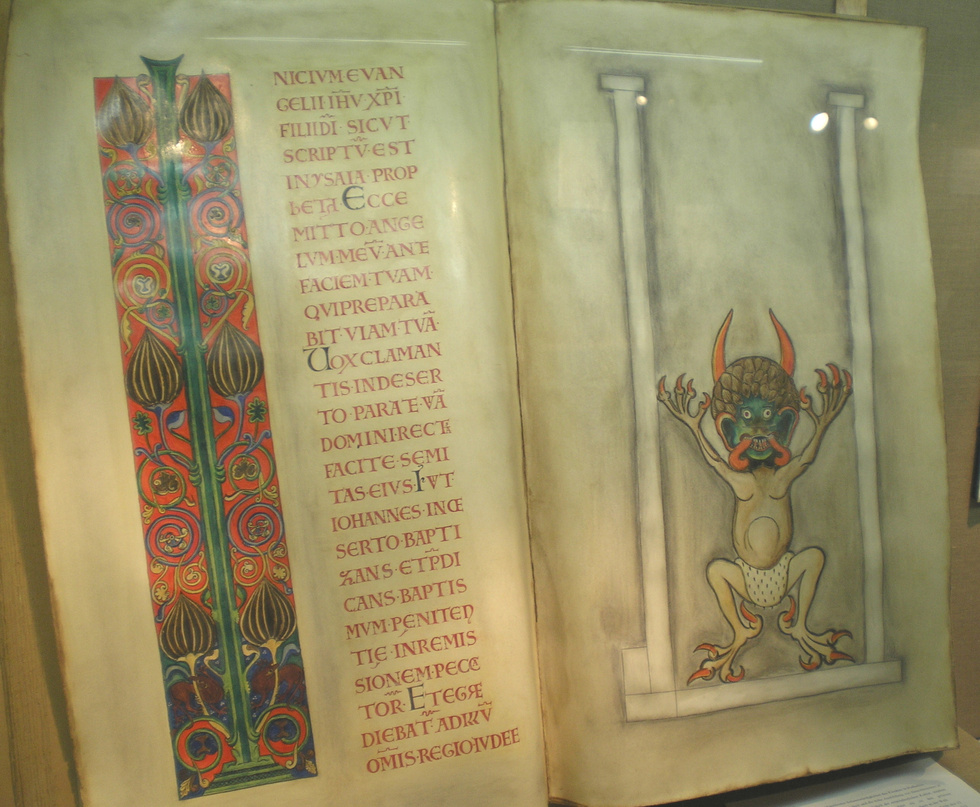 NICIVM EVAN
GELII IHV XPI
FILII DI · SICVT
SCRIPTV · EST
IN YSAIA · PROP
hETA ECCE
MITTO · ANGE
LVM · MEV · ANE
FACIEM · TVAM ·
QVI PREPARA
BIT · VIAM · TVA ·
UOX CLAMAN
TIS · IN DESER
TO · PARATE · VIA
DOMINI · RECTAS
FACITE · SEMI
TAS · EIVS · FVIT ·
IOHANNES · IN
SERTO · BAPTI
ZANS · ET PDI
CANS · BAPTIS
MVM · PENITEN
TIE · IN REMIS
SIONEM · PECCA
TOR · ET EGRE
DIEBAT · AD
OMIS · REGIO · IVDEE